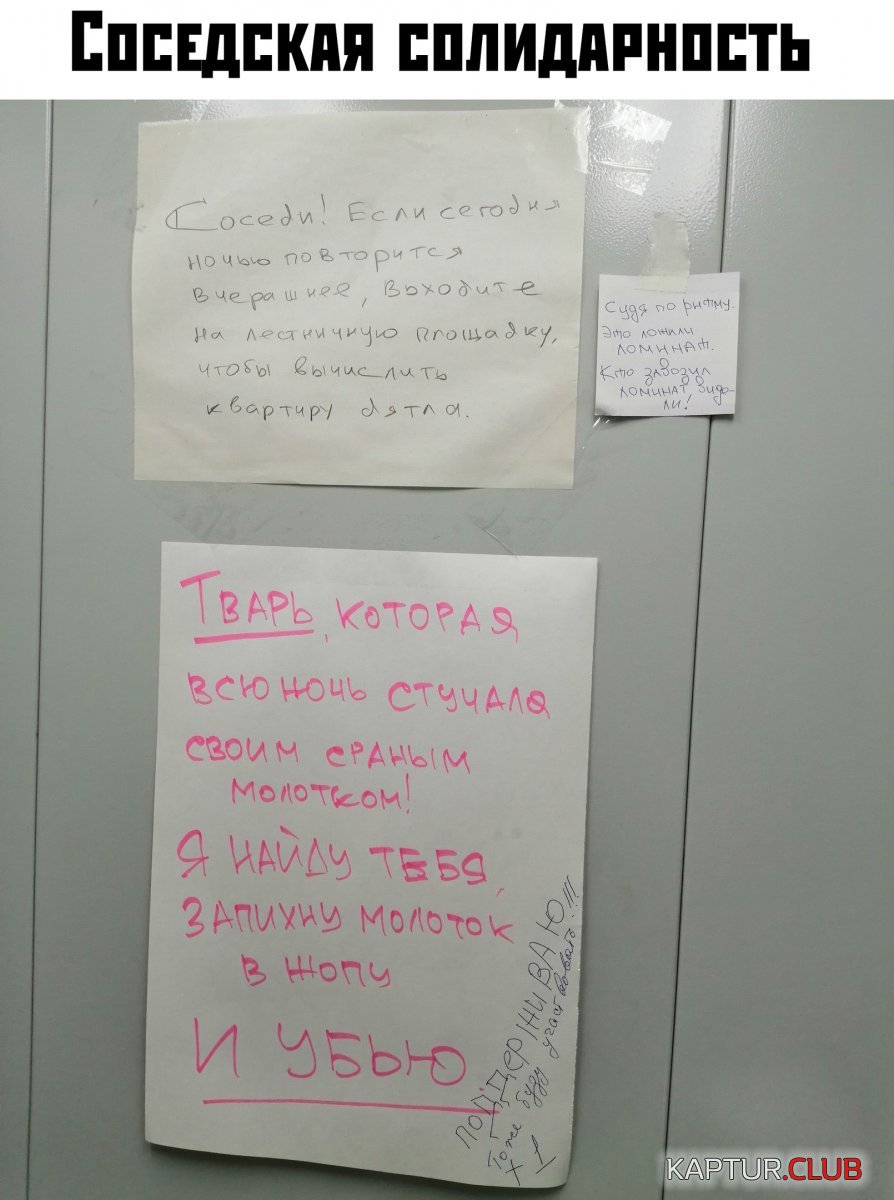 Соседская солидарность
Соседи! Если сегодня
ночью повторится
вчерашнее, выходите
на лестничную площадку,
чтобы вычислить
квартиру дятла.
Судя по ритму.
Это ложили
ломинат.
Кто завозил
ломинат видо-
ли!
Тварь, которая
всю ночь стучала
своим сраным
молотком!
Я найду тебя,
запихну молоток
в жопу
и убью.
ПОДДЕРЖИВАЮ
Тоже буду участвовать!!!
X 1
KAPTUR.CLUB